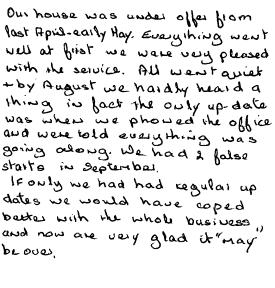 Our house was under offer from
last April-early May. Everything went
well at first we were very pleased
with the service. All went quiet
+ by August we hardly heard a
thing in fact the only up-date
was when we phoned the office
and were told everything was
going along. We had 2 false
starts in September.
If only we had had regular up
dates we would have coped
better with the whole business
and now are very glad it "may"
be over.